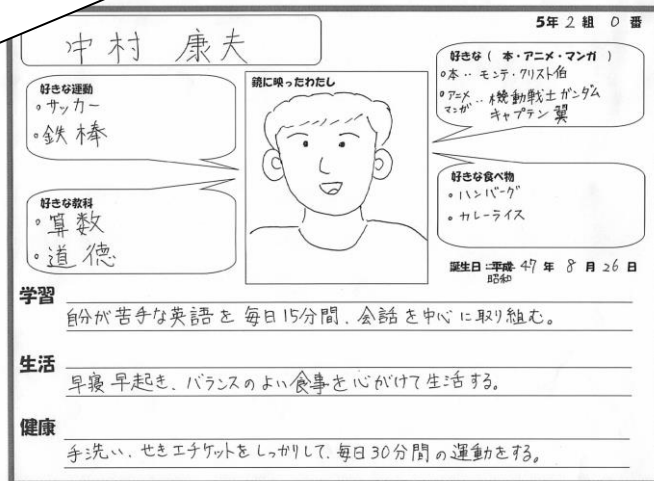 5年 2 組 0 番
中村 康夫
好きな運動
・サッカー
・鉄棒
鏡に映ったわたし
好きな( 本・アニメ・マンガ )
・本‥ モンテ・クリスト伯
・アニメ マンガ‥ 機動戦士ガンダム
キャプテン翼
好きな教科
・算数
・道徳
好きな食べ物
・ハンバーグ
・カレーライス
誕生日:平成 47 年 8 月 26 日
昭和
学習
自分が苦手な英語を毎日15分間、会話を中心に取り組む。
生活
早寝早起き、バランスのよい食事を心がけて生活する。
健康
手洗い、せきエチケットをしっかりして、毎日30分間の運動をする。